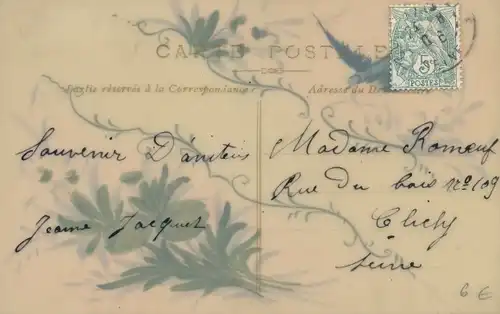 CARTE POSTALE
Partie réservée à la Correspondance
Adresse du
5c
POSTES
Souvenir D'amitiés
Jeanne Jacquet
Madame Romeuf
Rue du bois No 109
Clichy
Seine
6 €